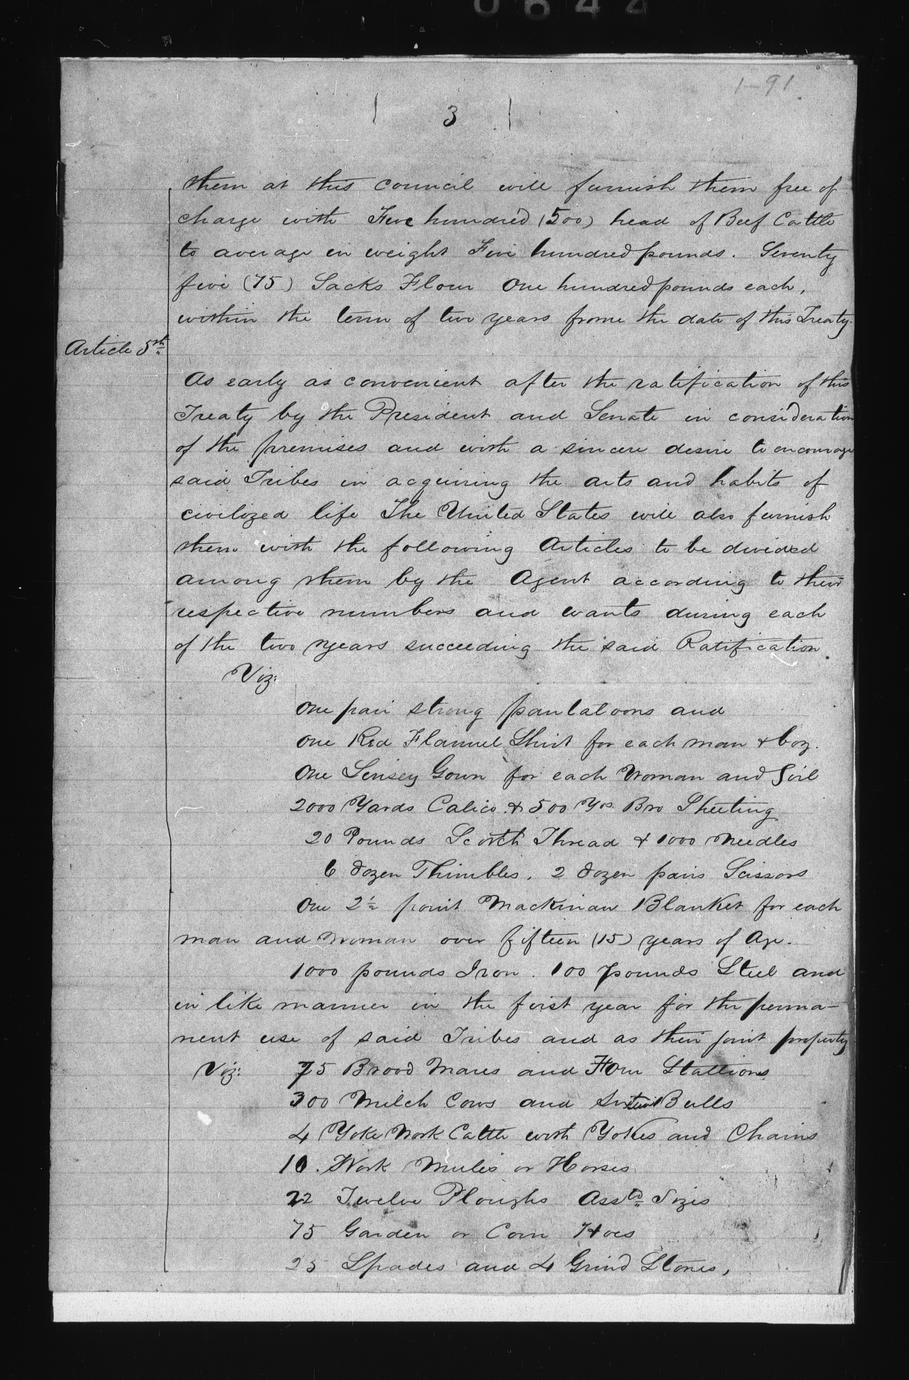 0644
1-91
3
them at this council will furnish them free of
charge with Five hundred (500) head of Beef Cattle
to average in weight Five hundred pounds. Seventy
five (75) Sacks Flour One hundred pounds each,
within the term of two years frome the date of this Treaty.
Article 5th
As early as convenient after the ratification of this
Treaty by the President and Senate in consideration
of the premises and with a sincere desire to encourage
said Tribes in acquiring the arts and habits of
civilized life The United States will also furnish
them with the following Articles to be divided
among them by the Agent according to their
respective numbers and wants during each
of the two years succeeding the said Ratification.
Viz:
One pair strong pantaloons and
One Red Flannel Shirt for each man & boy.
One Linsey Gown for each Woman and Girl
2000 Yards Calico & 500 Yds Bro Sheeting
20 Pounds Scotch Thread & 1000 Needles
6 dozen Thimbles, 2 dozen pairs Scissors
One 2½ point Mackinaw Blanket for each
man and woman over fifteen (15) years of Age.
1000 pounds Iron. 100 pounds Steel and
in like manner in the first year for the perma-
nent use of said Tribes and as their joint property
Viz: 75 Brood Mares and Four Stallions
300 Milch Cows and Bulls
4 Yoke Work Cattle with Yokes and Chains
10. Work Mules or Horses
22 Twelve Ploughs Asstd Sizes
75 Garden or Corn Hoes
25 Spades and 4 Grind Stones,